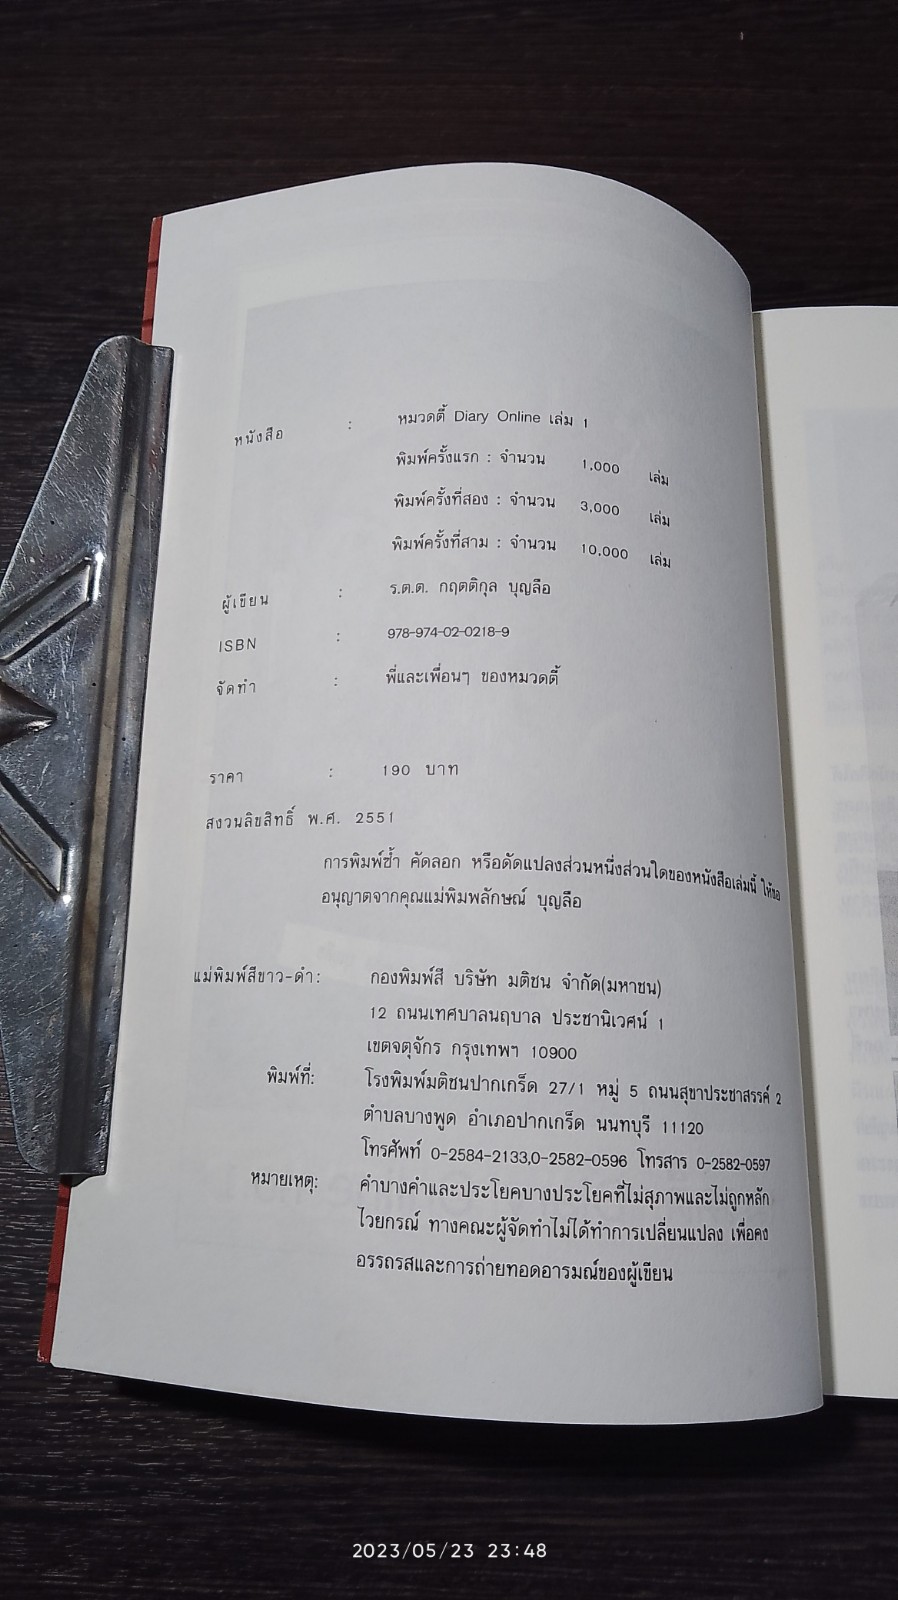 หนังสือ : หมวดตี้ Diary Online เล่ม 1
พิมพ์ครั้งแรก : จำนวน 1,000 เล่ม
พิมพ์ครั้งที่สอง : จำนวน 3,000 เล่ม
พิมพ์ครั้งที่สาม : จำนวน 10,000 เล่ม
ผู้เขียน : ร.ต.ต. กฤตติกุล บุญลือ
ISBN : 978-974-02-0218-9
จัดทำ : พี่และเพื่อนๆ ของหมวดตี้
ราคา : 190 บาท
สงวนลิขสิทธิ์ พ.ศ. 2551
การพิมพ์ซ้ำ คัดลอก หรือดัดแปลงส่วนหนึ่งส่วนใดของหนังสือเล่มนี้ ให้ขอ
อนุญาตจากคุณแม่พิมพลักษณ์ บุญลือ
แม่พิมพ์สีขาว-ดำ: กองพิมพ์สี บริษัท มติชน จำกัด(มหาชน)
12 ถนนเทศบาลนฤบาล ประชานิเวศน์ 1
เขตจตุจักร กรุงเทพฯ 10900
พิมพ์ที่: โรงพิมพ์มติชนปากเกร็ด 27/1 หมู่ 5 ถนนสุขาประชาสรรค์ 2
ตำบลบางพูด อำเภอปากเกร็ด นนทบุรี 11120
โทรศัพท์ 0-2584-2133,0-2582-0596 โทรสาร 0-2582-0597
หมายเหตุ: คำบางคำและประโยคบางประโยคที่ไม่สุภาพและไม่ถูกหลัก
ไวยกรณ์ ทางคณะผู้จัดทำไม่ได้ทำการเปลี่ยนแปลง เพื่อคง
อรรถรสและการถ่ายทอดอารมณ์ของผู้เขียน
2023/05/23 23:48